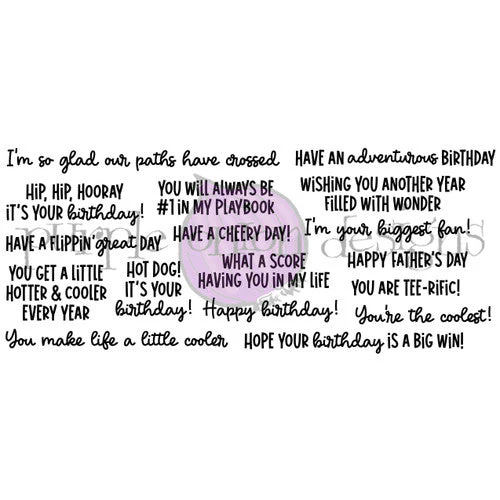 I'm so glad our paths have crossed
HAVE AN adventurous BIRTHDAY
HIP, HIP, HOORAY
IT'S YOUR birthday!
YOU WILL ALWAYS BE
#1 IN MY PLAYBOOK
WISHING YOU ANOTHER YEAR
FILLED WITH WONDER
HAVE A FLIPPIN' great DAY
HAVE A CHEERY DAY!
I'm your biggest fan!
purple onion designs
YOU GET A LITTLE
HOTTER & COOLER
EVERY YEAR
HOT DOG!
IT'S YOUR
birthday!
WHAT A SCORE
HAVING YOU IN MY LIFE
HAPPY FATHER'S DAY
YOU ARE TEE-RIFIC!
Happy birthday!
You're the coolest!
You make life a little cooler
HOPE YOUR birthday IS A BIG WIN!